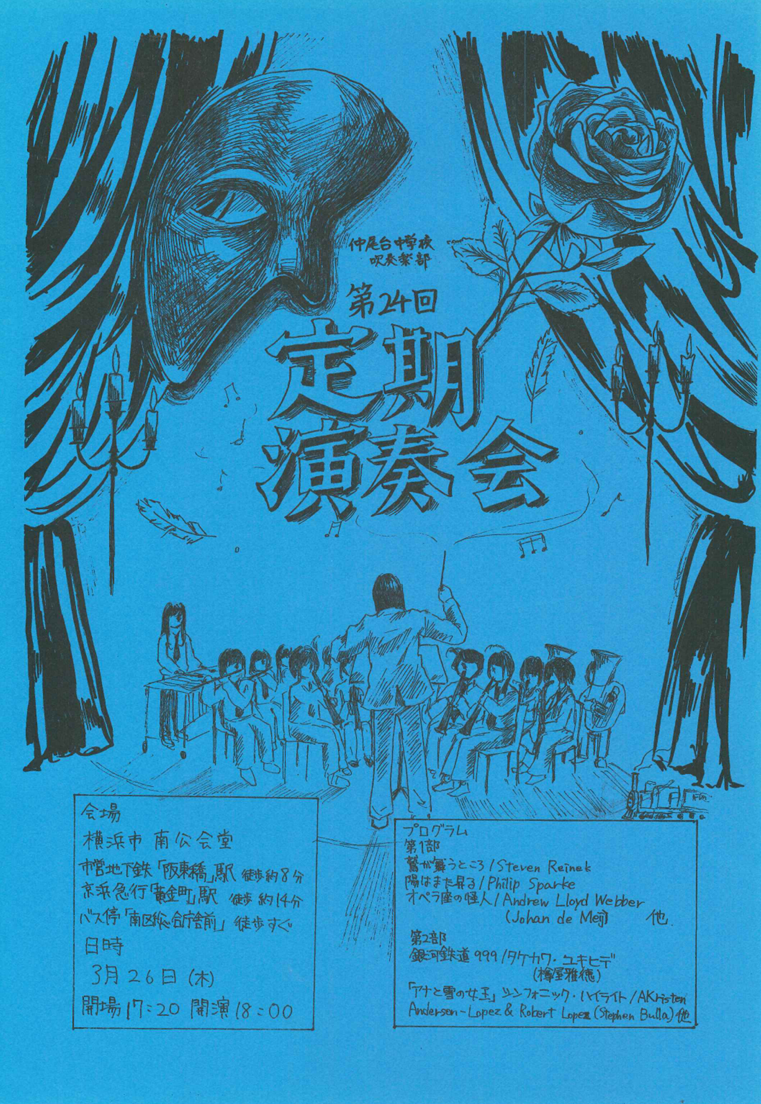 仲尾台中学校
吹奏楽部
第24回
定期
演奏会
会場
横浜市 南公会堂
市営地下鉄「阪東橋」駅 徒歩約8分
京浜急行「黄金町」駅 徒歩約14分
バス停「南区総合庁舎前」徒歩すぐ
日時
3月26日(木)
開場17:20 開演18:00
プログラム
第1部
鷲が舞うところ/Steven Reinek
陽はまた昇る/Philip Sparke
オペラ座の怪人/Andrew Lloyd Webber
(Johan de Meij) 他
第2部
銀河鉄道999/タケカワ・ユキヒデ
(樽屋雅徳)
「アナと雪の女王」シンフォニック・ハイライト/AKristen
Anderson-Lopez & Robert Lopez (Stephen Bulla) 他